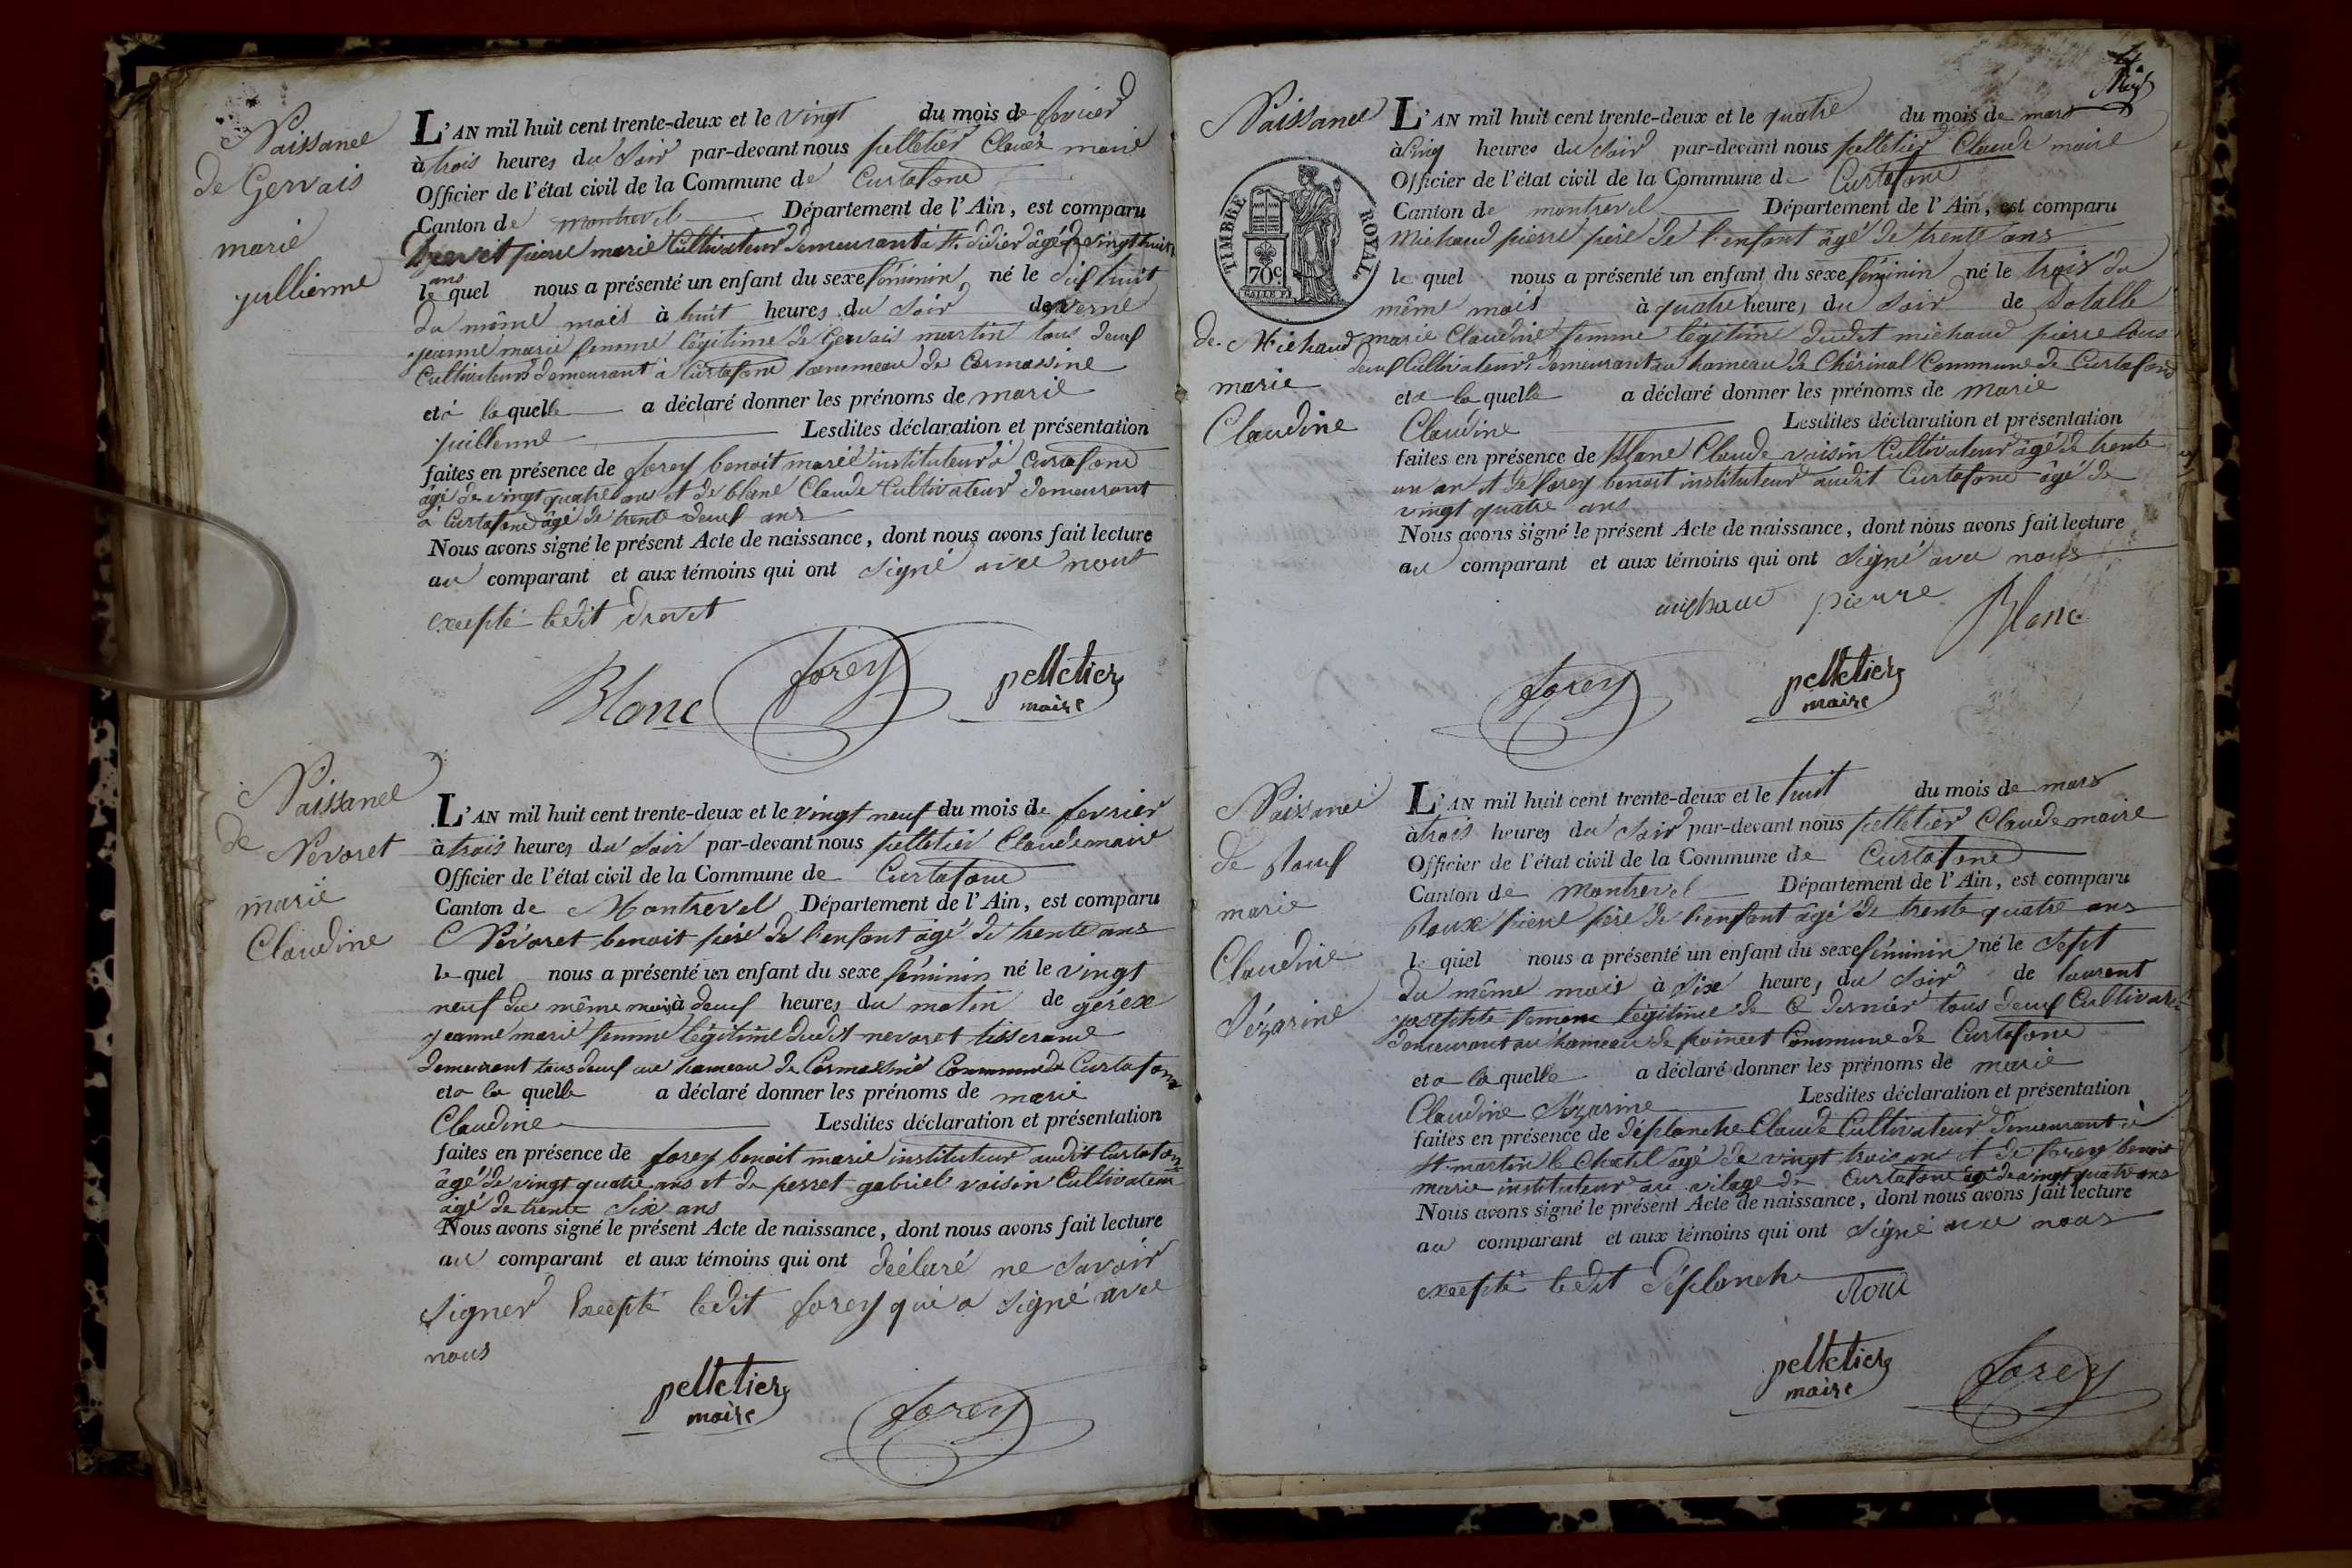 Naissance
de Gervais
marie
jullienne
L'AN mil huit cent trente-deux et le vingt du mois de fevrier
à trois heures du soir par-devant nous pelletier Claude maire
Officier de l'état civil de la Commune de Curtafond
Canton de montrevel Département de l'Ain, est comparu
Drevet pierre marie Cultivateur demeurant à St. didier âgé de vingt huit
ans
le quel nous a présenté un enfant du sexe féminin, né le dix huit
du même mois à huit heures du soir de verne
jeanne marie femme légitime de Gervais martin tous deux
Cultivateurs demeurant à Curtafond hammeau de Cormassine
et à laquelle a déclaré donner les prénoms de marie
juillenne Lesdites déclaration et présentation
faites en présence de forey benoit marie instituteur à Curtafond
âgé de vingt quatre ans et de blanc Claude Cultivateur demeurant
à Curtafond âgé de trente deux ans
Nous avons signé le présent Acte de naissance, dont nous avons fait lecture
au comparant et aux témoins qui ont signé avec nous
excepté ledit drevet
Blanc forey pelletier
maire
Naissance
de Nevoret
marie
Claudine
L'AN mil huit cent trente-deux et le vingt neuf du mois de fevrier
à trois heures du soir par-devant nous pelletier Claude maire
Officier de l'état civil de la Commune de Curtafond
Canton de Montrevel Département de l'Ain, est comparu
Névoret benoit père de l'enfant âgé de trente ans
le quel nous a présenté un enfant du sexe féminin né le vingt
neuf du même mois à deux heures du matin de géréx
jeanne marie femme légitime dudit nevoret tisserand
demeurant tous deux au hameau de Cormassine Commune de Curtafond
et a la quelle a déclaré donner les prénoms de marie
Claudine Lesdites déclaration et présentation
faites en présence de forey benoit marie instituteur audit Curtafond
âgé de vingt quatre ans et de perret gabriel voisin Cultivateur
âgé de trente six ans
Nous avons signé le présent Acte de naissance, dont nous avons fait lecture
au comparant et aux témoins qui ont déclaré ne savoir
signer Excepté ledit forey qui a signé avec
nous
pelletier forey
maire
4
Naissance
TIMBRE ROYAL
70c.
de Michaud
marie
Claudine
L'AN mil huit cent trente-deux et le quatre du mois de mars
à cinq heures du soir par-devant nous pelletier Claude maire
Officier de l'état civil de la Commune de Curtafond
Canton de montrevel Département de l'Ain, est comparu
Michaud pierre père de l'enfant âgé de trente ans
le quel nous a présenté un enfant du sexe féminin né le trois du
même mois à quatre heures du soir de
marie Claudine femme légitime dudit michaud pierre tous
deux Cultivateurs demeurant au hameau de Chérinal Commune de Curtafond
et a la quelle a déclaré donner les prénoms de marie
Claudine Lesdites déclaration et présentation
faites en présence de Blanc Claude voisin Cultivateur âgé de trente
un an et de forey benoit instituteur audit Curtafond âgé de
vingt quatre ans
Nous avons signé le présent Acte de naissance, dont nous avons fait lecture
au comparant et aux témoins qui ont signé avec nous
michaud pierre Blanc
forey pelletier
maire
Naissance
de Roux
marie
Claudine
Sézarine
L'AN mil huit cent trente-deux et le huit du mois de mars
à trois heures du soir par-devant nous pelletier Claude maire
Officier de l'état civil de la Commune de Curtafond
Canton de Montrevel Département de l'Ain, est comparu
Roux pierre père de l'enfant âgé de trente quatre ans
le quel nous a présenté un enfant du sexe féminin né le sept
du même mois à six heures du soir de laurent
josephte femme légitime de ce dernier tous deux Cultivat
demeurant au hameau de poincet Commune de Curtafond
et a la quelle a déclaré donner les prénoms de marie
Claudine Sézarine Lesdites déclaration et présentation
faites en présence de déplanche Claude Cultivateur demeurant à
St martin le Chatel âgé de vingt trois ans et de forey benoit
marie instituteur au vilage de Curtafond âgé de vingt quatre ans
Nous avons signé le présent Acte de naissance, dont nous avons fait lecture
au comparant et aux témoins qui ont signé avec nous
excepté ledit déplanche Roux
pelletier forey
maire